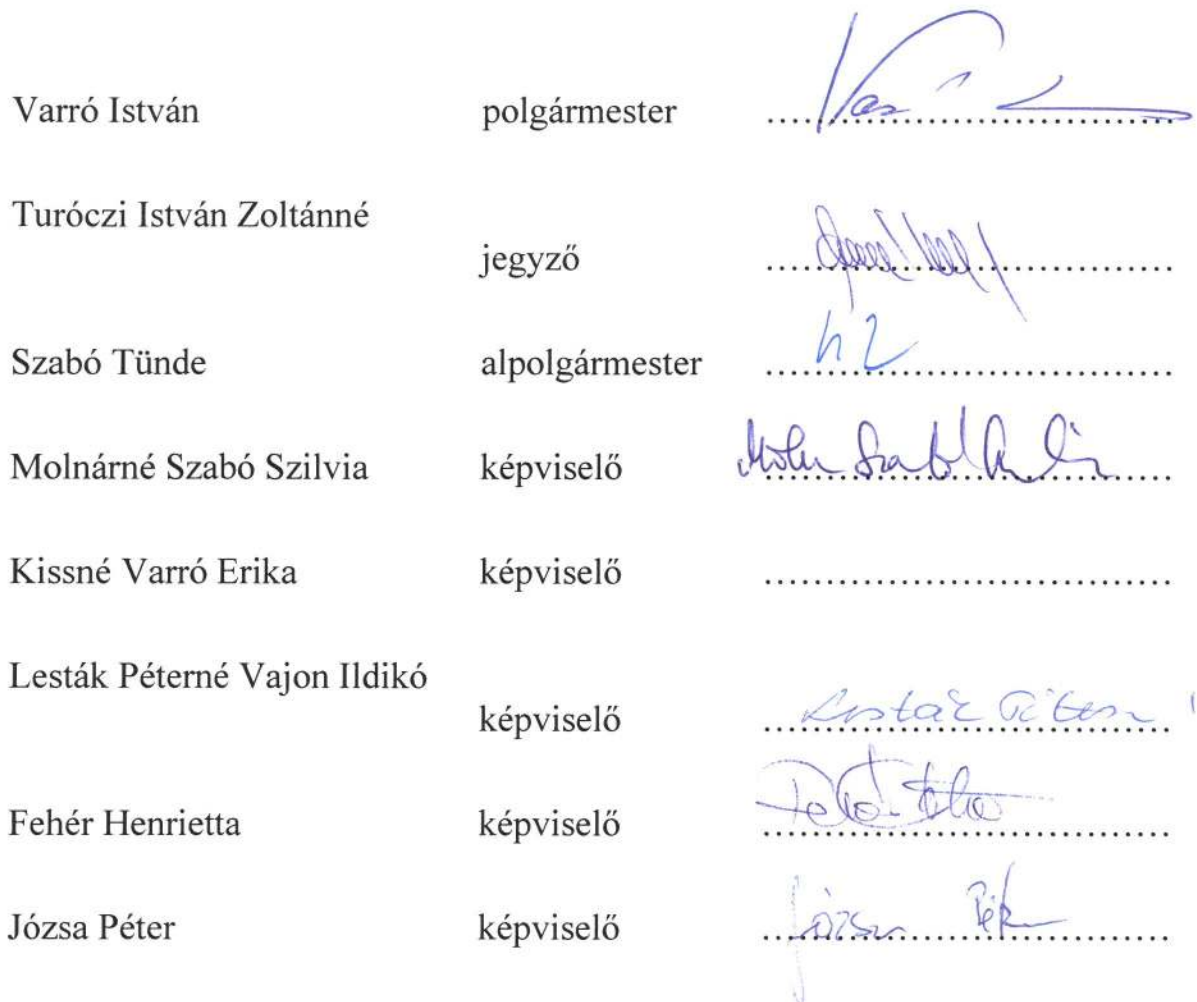 Varró István polgármester ..............................
Turóczi István Zoltánné
jegyző ..............................
Szabó Tünde alpolgármester ..............................
Molnárné Szabó Szilvia képviselő ..............................
Kissné Varró Erika képviselő ..............................
Lesták Péterné Vajon Ildikó
képviselő ..............................
Fehér Henrietta képviselő ..............................
Józsa Péter képviselő .............................. Józsa Péter